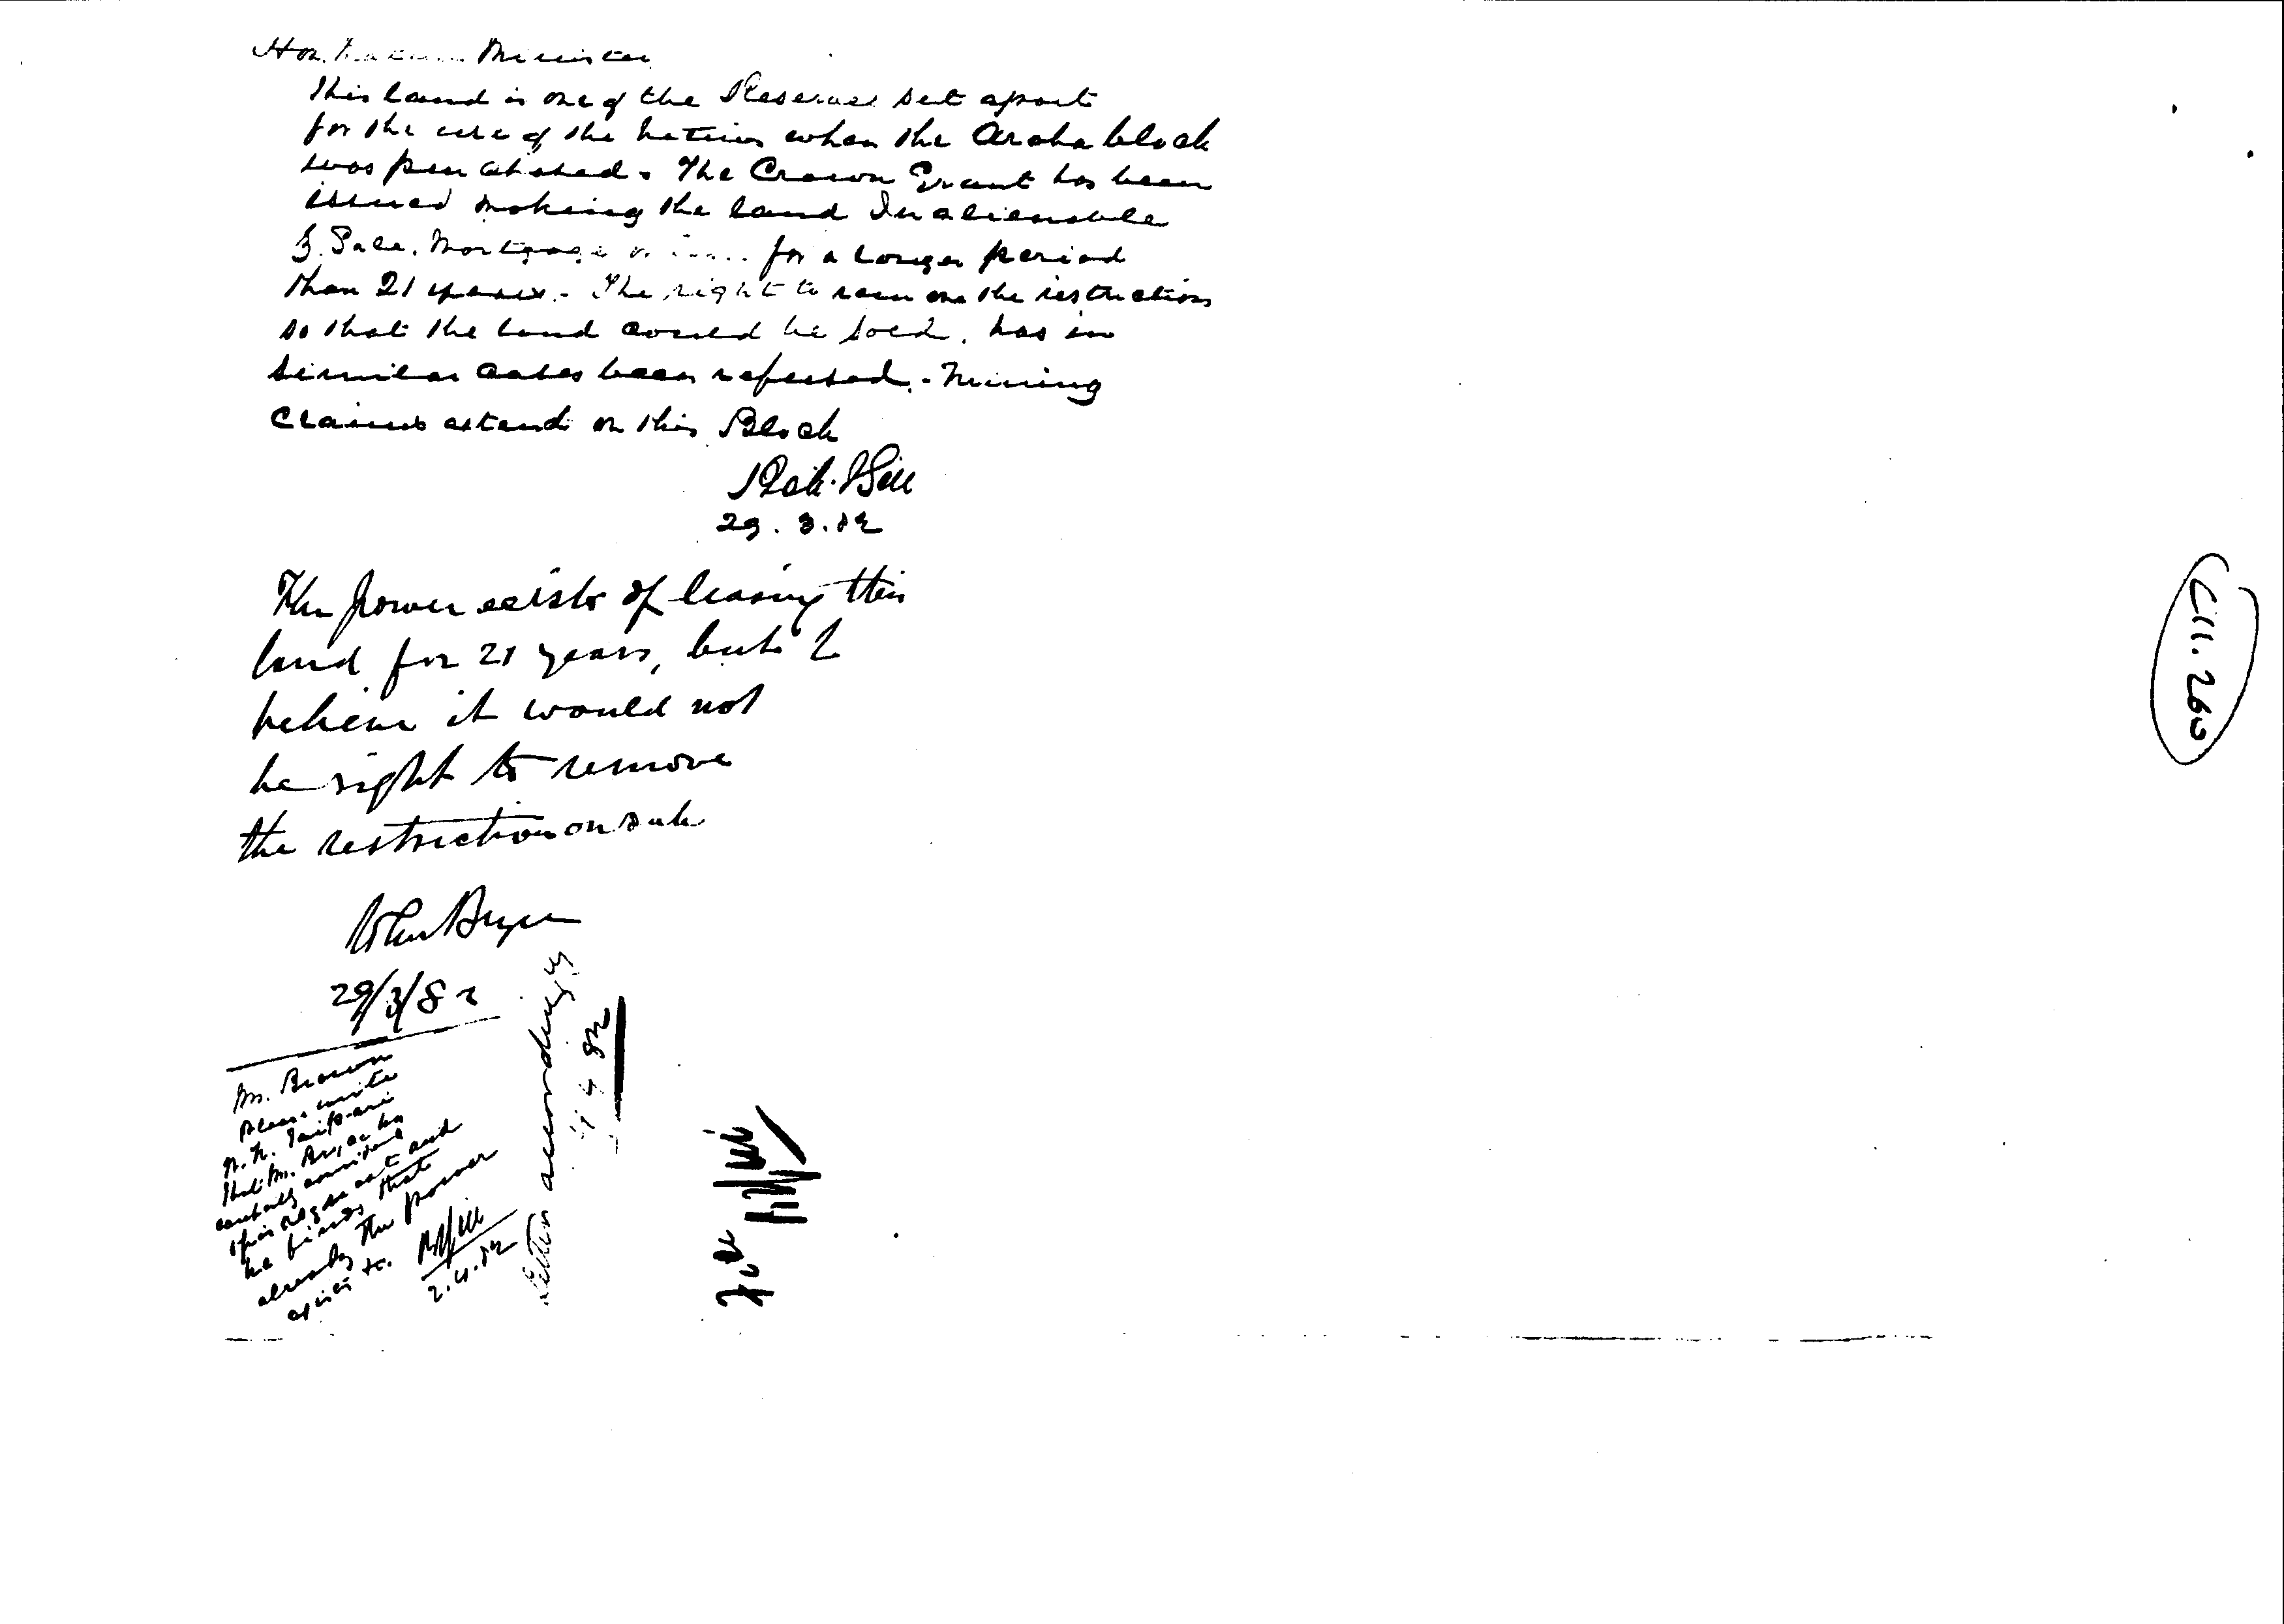 Hon. Native Minister
This land is one of the Reserves set apart
for the use of the Natives when the Aroha block
was purchased. The Crown Grant has been
issued making the land Inalienable
by Sale, Mortgage or for a longer period
than 21 years. - The right to remove the restrictions
so that the land could be sold, has in
similar cases been refused. - Mining
Claims extend on this Block
Rich. Gill
29. 3. 82
The power exists of leasing this
land for 21 years, but I
believe it would not
be right to remove
the restriction on sale
John Bryce
29/3/82
Mr. Brown
Please write
Taipari
that Mr. Bryce has
carefully considered
his request and
he finds that
already the power
2.4.82
Letter accordingly
4 4 82
C111. 260